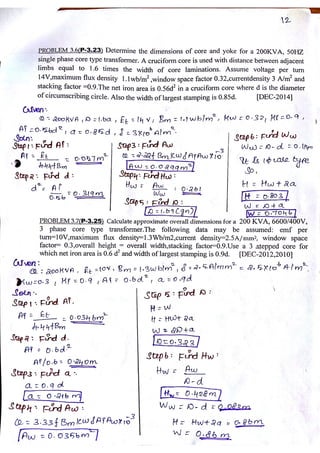 12
PROBLEM 3.6(P-3.23) Determine the dimensions of core and yoke for a 200KVA, 50HZ
single phase core type transformer. A cruciform core is used with distance between adjacent
limbs equal to 1.6 times the width of core laminations. Assume voltage per turn
14V,maximum flux density 1.1wb/m²,window space factor 0.32,currentdensity 3 A/m² and
stacking factor =0.9.The net iron area is 0.56d² in a cruciform core where d is the diameter
of circumscribing circle. Also the width of largest stamping is 0.85d. [DEC-2014]
Given:
Q = 200KVA, D = 1.6a, Et = 14V, Bm = 1.1wb/m², Kw = 0.32, Kf = 0.9,
Af = 0.56d², a = 0.85d, δ = 3x10⁶ A/m².
Soln:
Step 1: Find Af:
Af = Et / 4.44fBm = 0.057m²
Step 2: Find d:
d² = Af / 0.56 = 0.319m
Step 3: Find Aw
Q = 2.22f Bm Kw δ Af Aw x10⁻³
Step 4: Find Hw:
Hw = Aw / Ww
Step 5: Find D:
Step 6: Find Ww
H = Hw + 2a
H = 0.803
W = D + a
W = 0.7046
PROBLEM 3.7(P-3.25) Calculate approximate overall dimensions for a 200 KVA, 6600/400V,
3 phase core type transformer.The following data may be assumed: emf per
turn=10V,maximum flux density=1.3Wb/m2,current density=2.5A/mm², window space
factor= 0.3,overall height = overall width,stacking factor=0.9.Use a 3 stepped core for
which net iron area is 0.6 d² and width of largest stamping is 0.9d. [DEC-2012,2010]
Given:
Q = 200KVA, Et = 10V, Bm = 1.3wb/m², δ = 2.5A/mm² = 2.5x10⁶ A/m²
Kw = 0.3, Kf = 0.9, Af = 0.6d², a = 0.9d
Soln:
Step 1: Find Af.
Af = Et / 4.44fBm = 0.0346m²
Step 2: Find d.
Af = 0.6d²
Af/0.6 = 0.240m
Step 3: Find a
a = 0.9d
a = 0.216m
Step 4: Find Aw:
Q = 3.33f Bm Kw δ Af Aw x10⁻³
Aw = 0.0356m²
Step 5: Find D:
H = W
H = Hw + 2a
W = 2D + a
D = 0.323
Step 6: Find Hw:
Hw = Aw / D-d
Hw = 0.428m
Ww = D - d = 0.083m
H = Hw + 2a = 0.86m
W = 0.86m